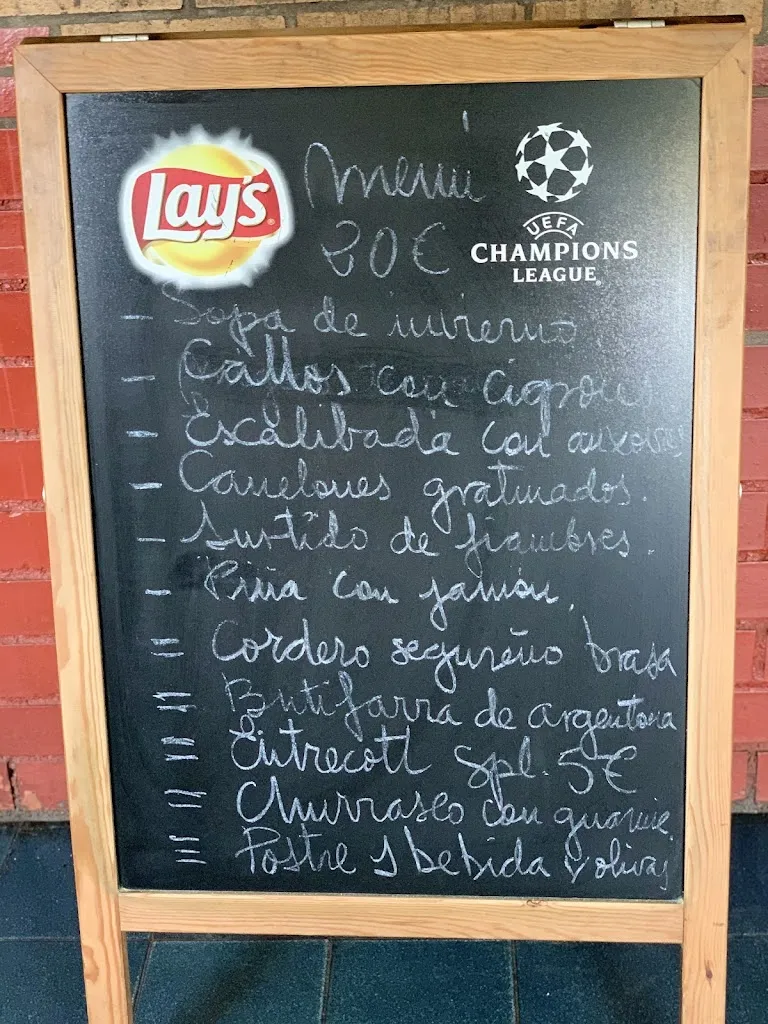 Lay's
Menú
20€
UEFA
CHAMPIONS
LEAGUE
- Sopa de invierno
- Callos con
- Escalibada con
- Canelones gratinados.
- Surtido de fiambres.
- Piña con jamón.
Cordero segureño brasa
Butifarra de argentona
Entrecott Spl. 5€
Churrasco con
Postre 1 bebida y olivas